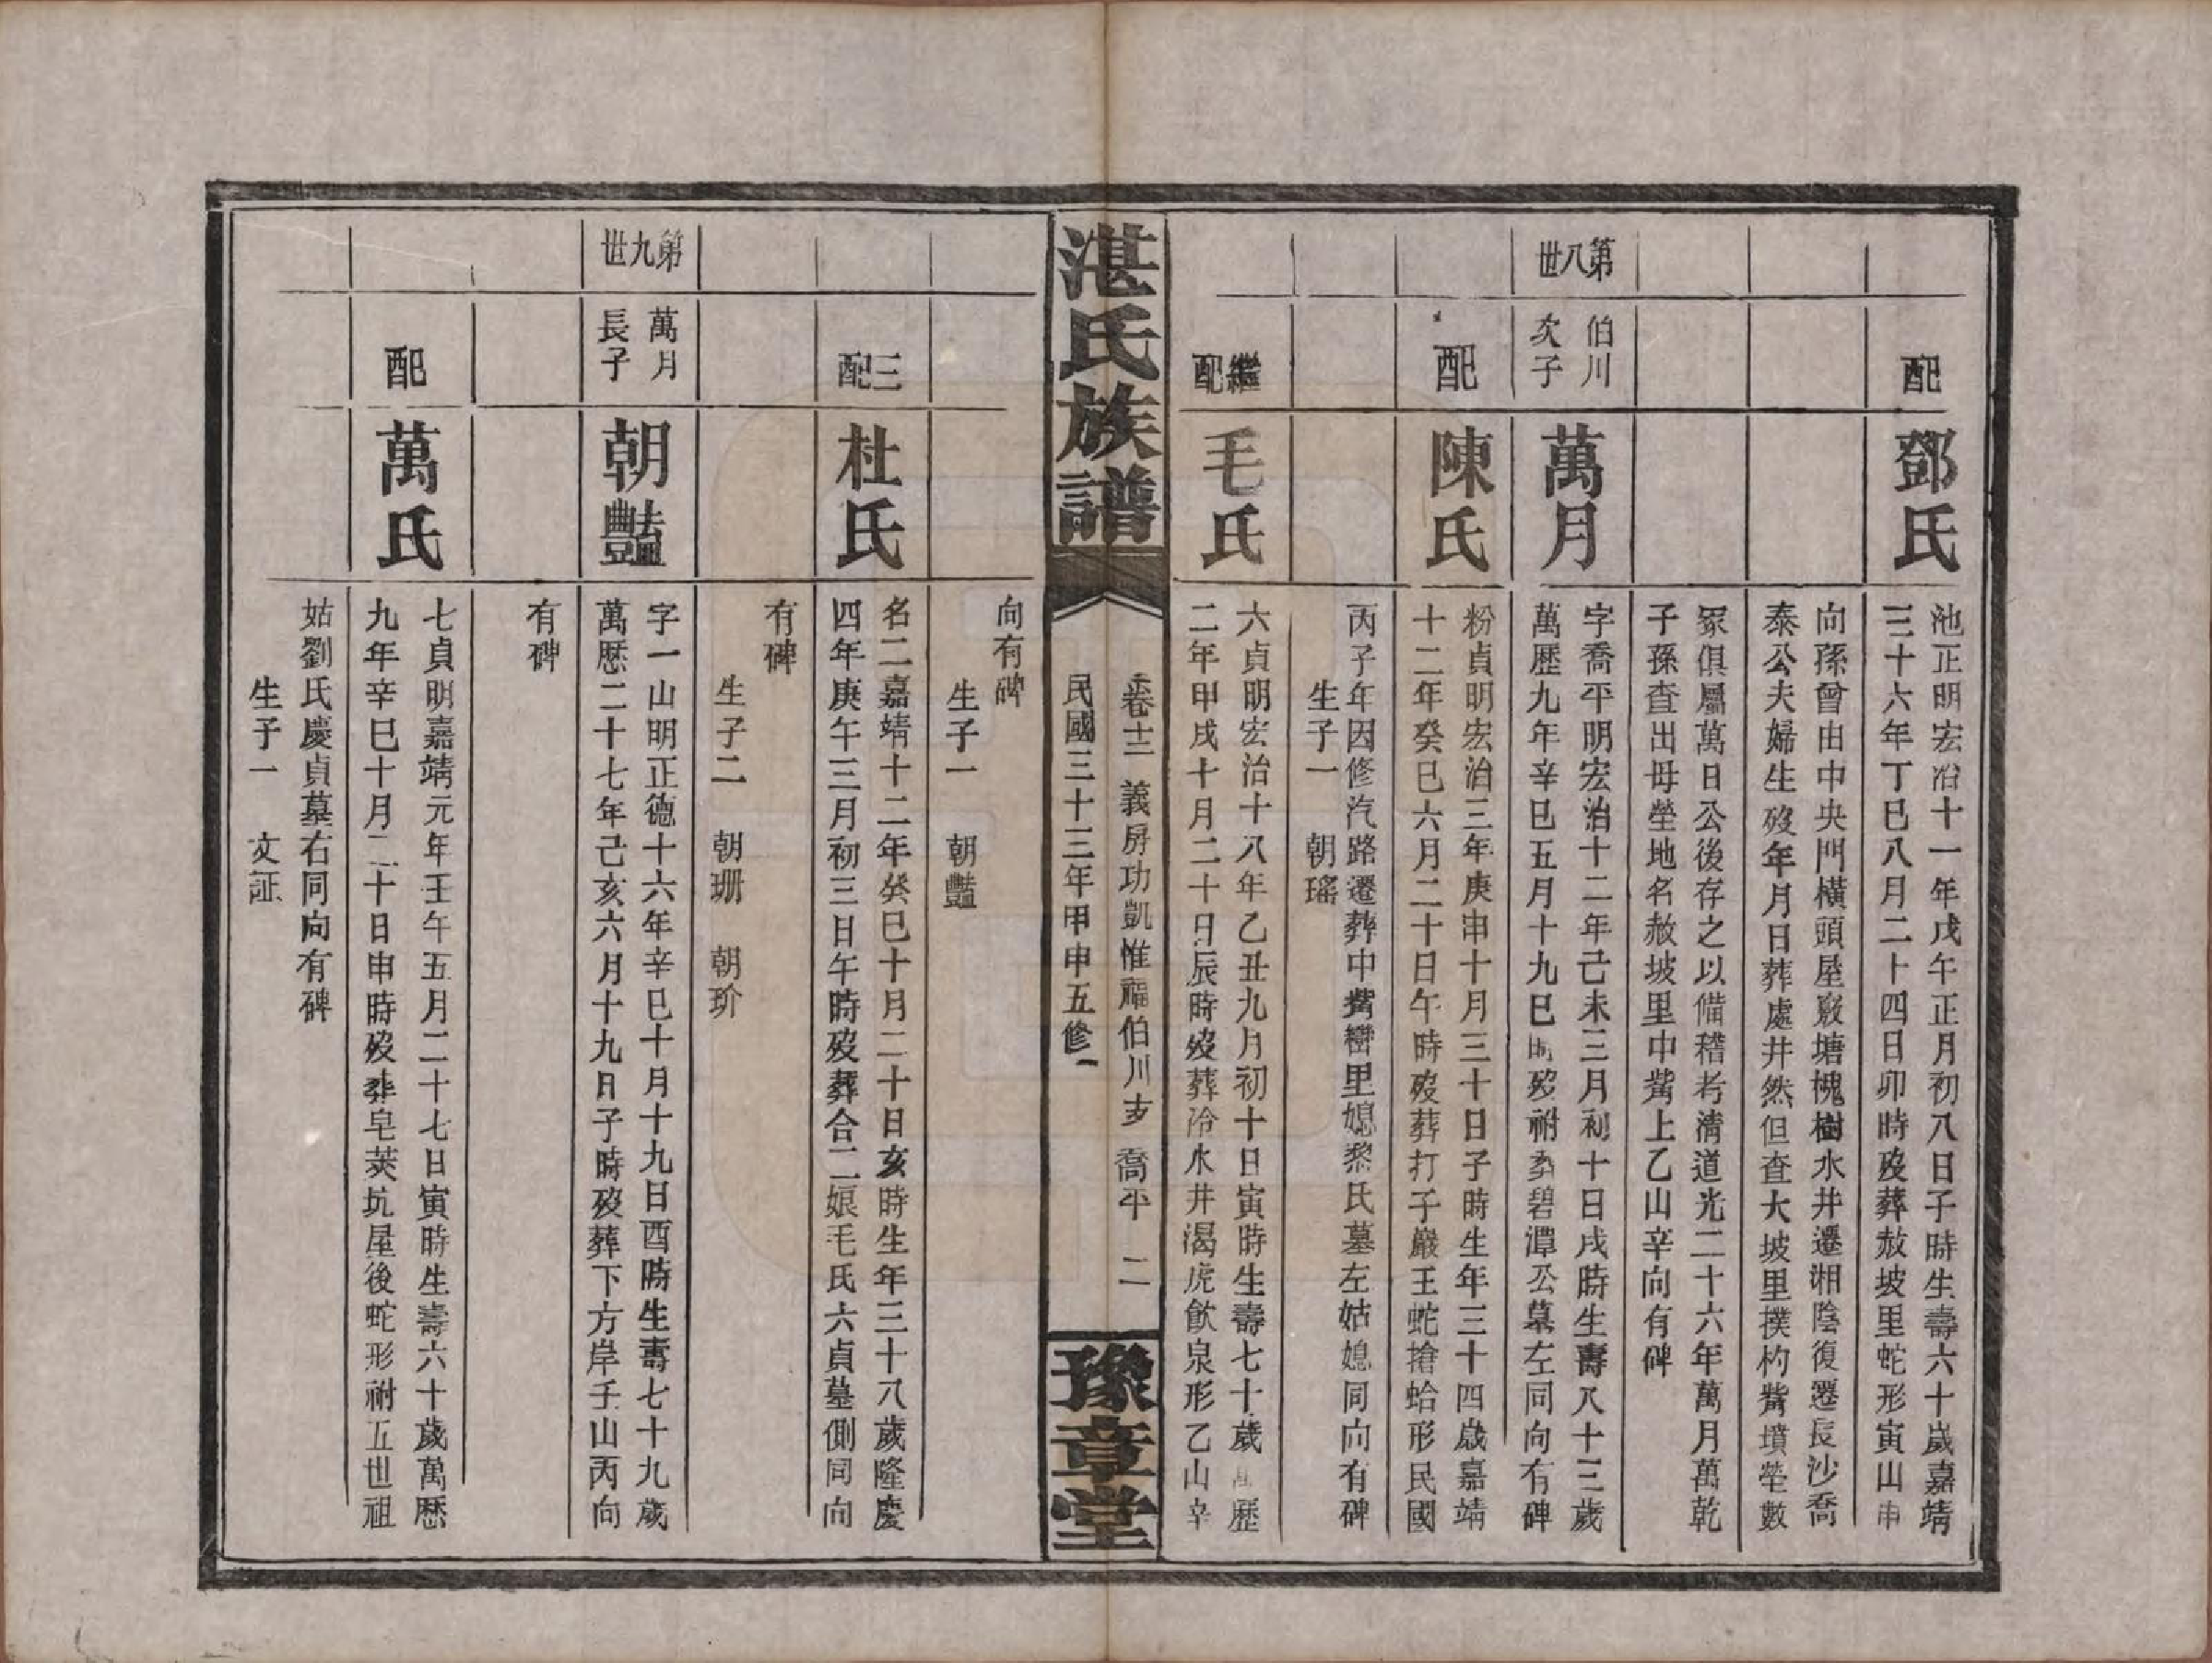 配
鄧氏
池正明宏治十一年戊午正月初八日子時生壽六十歲嘉靖
三十六年丁巳八月二十四日卯時歿葬赦坡里蛇形寅山申
向孫曾由中央門橫頭屋廒塘槐樹水井遷湘陰復遷長沙喬
泰公夫婦生歿年月日葬處井然但查大坡里撲杓觜墳塋數
冢俱屬萬日公後存之以備稽考清道光二十六年萬月萬乾
子孫查出毋塋地名赦坡里中觜上乙山辛向有碑
第八世
伯川次子
萬月
字喬平明宏治十二年己未三月初十日戌時生壽八十三歲
萬歷九年辛巳五月十九巳時歿祔葬碧潭公墓左同向有碑
配
陳氏
粉貞明宏治三年庚申十月三十日子時生年三十四歲嘉靖
十二年癸巳六月二十日午時歿葬打子巖王蛇搶蛤形民國
丙子年因修汽路遷葬中觜巒里媳黎氏墓左姑媳同向有碑
生子一 朝瑤
繼配
毛氏
六貞明宏治十八年乙丑九月初十日寅時生壽七十歲萬歷
二年甲戌十月二十日辰時歿葬冷水井渴虎飲泉形乙山辛
湛氏族譜
卷十二 義房功凱惟福伯川支 喬平 二
民國三十三年甲申五修
豫章堂
向有碑
生子一 朝豔
三配
杜氏
名二嘉靖十二年癸巳十月二十日亥時生年三十八歲隆慶
四年庚午三月初三日午時歿葬合二娘毛氏六貞墓側同向
有碑
生子二 朝珊 朝玠
第九世
萬月長子
朝豔
字一山明正德十六年辛巳十月十九日酉時生壽七十九歲
萬歷二十七年己亥六月十九日子時歿葬下方岸壬山丙向
有碑
配
萬氏
七貞明嘉靖元年壬午五月二十七日寅時生壽六十歲萬歷
九年辛巳十月二十日申時歿葬皂莢坑屋後蛇形祔五世祖
姑劉氏慶貞墓右同向有碑
生子一 文証